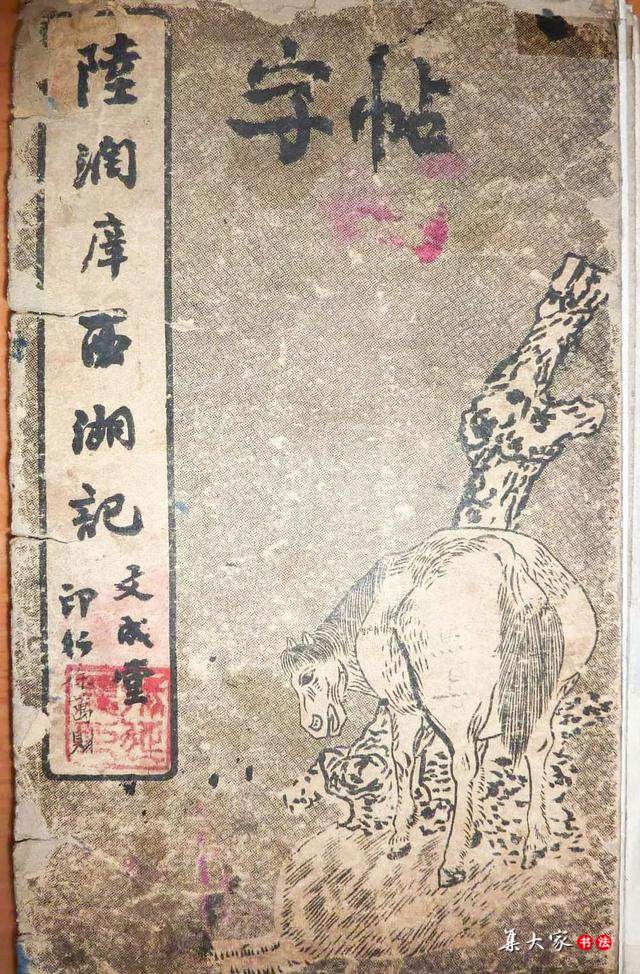 字帖
陸潤庠西湖記
文成堂
印行
集大家书法